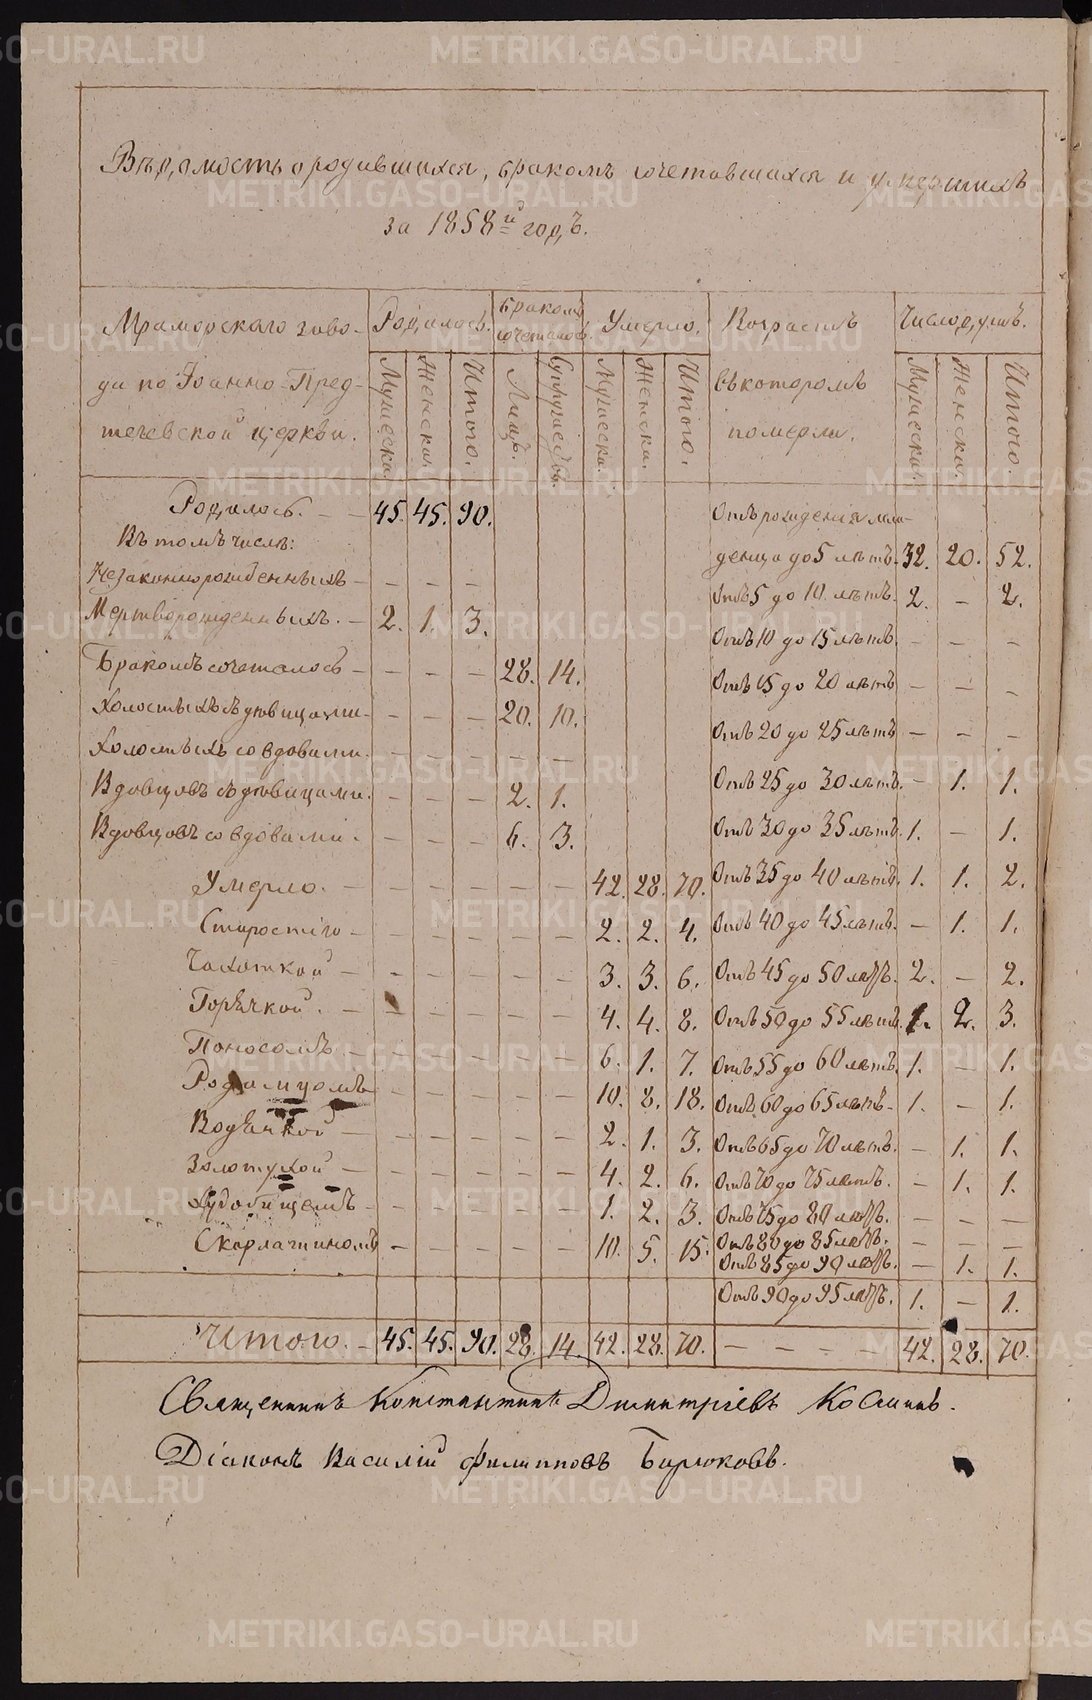 Вѣдомость о родившихся, бракомъ сочетавшихся и умершихъ
за 1858й годъ.
Мраморскаго заво-
да по Іоанно-Пред-
течевской церкви.
Родилось. Бракомъ сочеталось. Умерло. Возрастъ въ которомъ померли. Число душъ.
Мужеска. Женска. Итого. Лицъ. Супружествъ. Мужеска. Женска. Итого. Мужеска. Женска. Итого.
Родилось. – – 45. 45. 90.
Въ томъ числѣ:
Незаконнорожденныхъ – – – –
Мертворожденныхъ. – 2. 1. 3.
Бракомъ сочеталось – – – – 28. 14.
Холостыхъ съ дѣвицами. – – – 20. 10.
Холостыхъ со вдовами. – – – – –
Вдовцовъ съ дѣвицами. – – – 2. 1.
Вдовцовъ со вдовами. – – – 6. 3.
Умерло. – – – – – – 42. 28. 70.
Старостію – – – – – – 2. 2. 4.
Чахоткой – – – – – – 3. 3. 6.
Горячкой. – – – – – – 4. 4. 8.
Поносомъ – – – – – – 6. 1. 7.
Родимцомъ – – – – – 10. 8. 18.
Водянкой – – – – – – 2. 1. 3.
Золотухой – – – – – – 4. 2. 6.
Удобищемъ – – – – – – 1. 2. 3.
Скарлатиномъ – – – – – 10. 5. 15.
Отъ рожденія мла-
денца до 5 лѣтъ. 32. 20. 52.
Отъ 5 до 10 лѣтъ. 2. – 2.
Отъ 10 до 15 лѣтъ. – – –
Отъ 15 до 20 лѣтъ – – –
Отъ 20 до 25 лѣтъ – – –
Отъ 25 до 30 лѣтъ. – 1. 1.
Отъ 30 до 35 лѣтъ. 1. – 1.
Отъ 35 до 40 лѣтъ. 1. 1. 2.
Отъ 40 до 45 лѣтъ. – 1. 1.
Отъ 45 до 50 лѣтъ. 2. – 2.
Отъ 50 до 55 лѣтъ. 1. 2. 3.
Отъ 55 до 60 лѣтъ. 1. – 1.
Отъ 60 до 65 лѣтъ – 1. – 1.
Отъ 65 до 70 лѣтъ. – 1. 1.
Отъ 70 до 75 лѣтъ. – 1. 1.
Отъ 75 до 80 лѣтъ. – – –
Отъ 80 до 85 лѣтъ. – – –
Отъ 85 до 90 лѣтъ. – 1. 1.
Отъ 90 до 95 лѣтъ. 1. – 1.
Итого. – 45. 45. 90. 28. 14. 42. 28. 70. – – – – 42. 28. 70.
Священникъ Константинъ Димитріевъ Космин.
Діаконъ Василій Филипповъ Бирюковъ.
METRIKI.GASO-URAL.RU